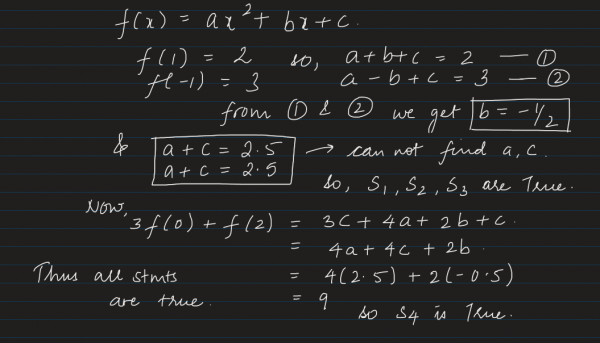 f(x) = ax² + bx + c.
f(1) = 2 so, a+b+c = 2 — ①
f(-1) = 3 a-b+c = 3 — ②
from ① & ② we get b = -1/2
& a+c = 2.5 → can not find a, c.
a+c = 2.5
So, S₁, S₂, S₃ are True.
Now,
3f(0) + f(2) = 3c + 4a + 2b + c.
= 4a + 4c + 2b.
Thus all stmts = 4(2.5) + 2(-0.5)
are true. = 9
so S4 is True.